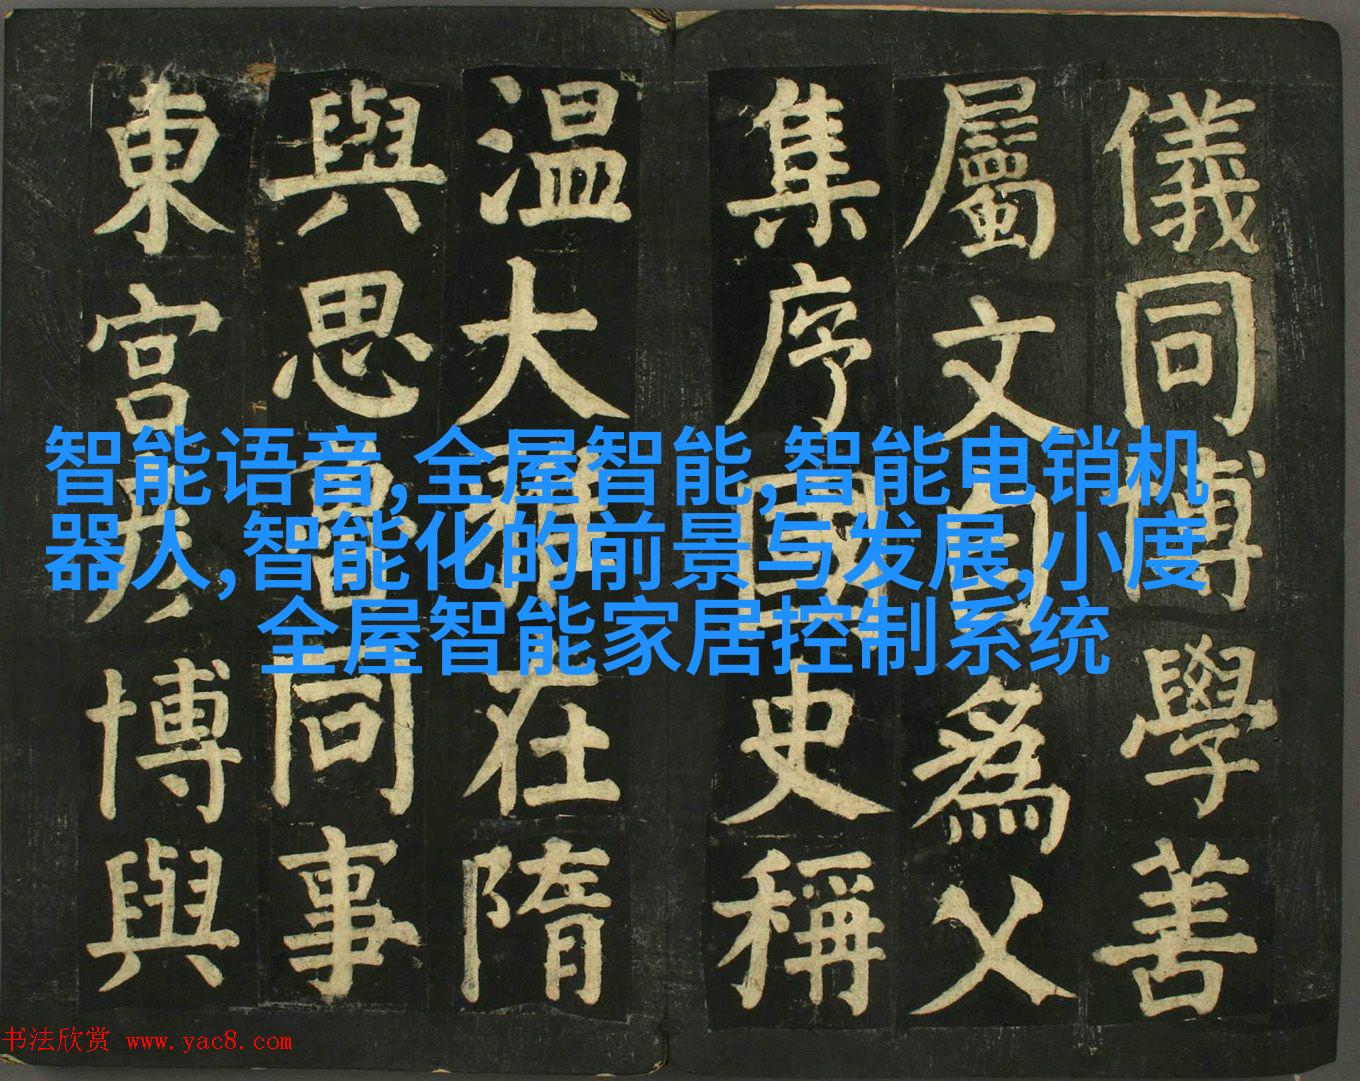 儀同博學善
屬文自為父
集序國史稱
温大在隋
與思同事
東宮彥博與
智能语音,全屋智能,智能电销机
器人,智能化的前景与发展,小度
全屋智能家居控制系统
书法欣赏 www.yac8.com